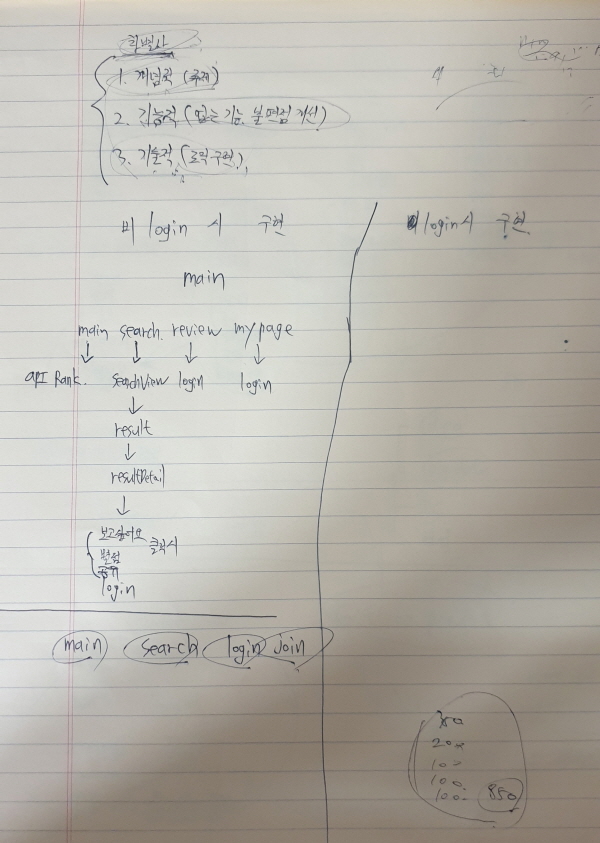 차별성
1. 개념적 (주제)
2. 기능적 (또는 기능, 불편점 개선)
3. 기술적 (로직 구현)
비 login 시 구현
main
main search review mypage
API Rank. searchView login login
result
resultDetail
보고싶어요
별점
클릭시
login
main search login join
비 login 시 구현
200
100
100
100
850